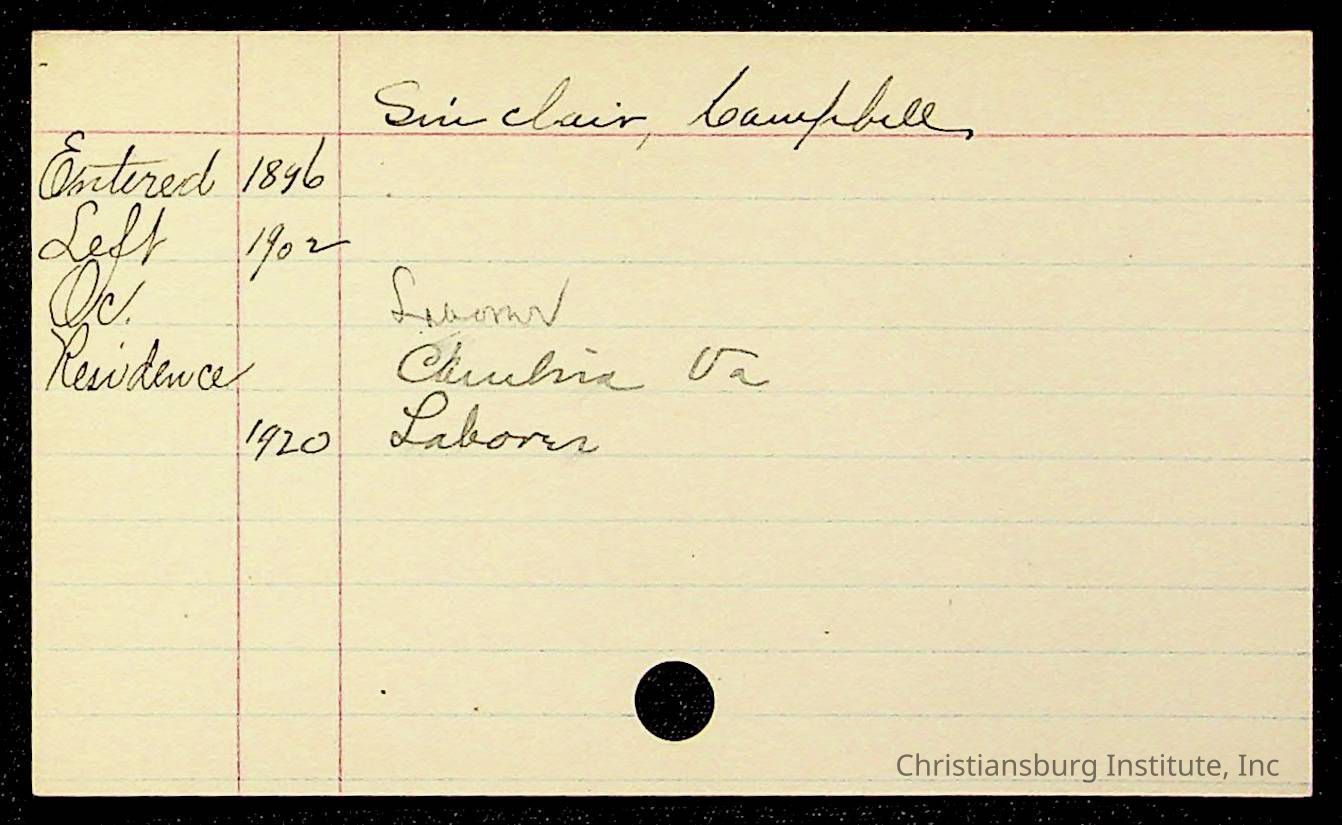 Sinclair, Campbell
Entered 1896
Left 1902
Oc. Laborer
Residence Cambria Va
1920 Laborer
Christiansburg Institute, Inc